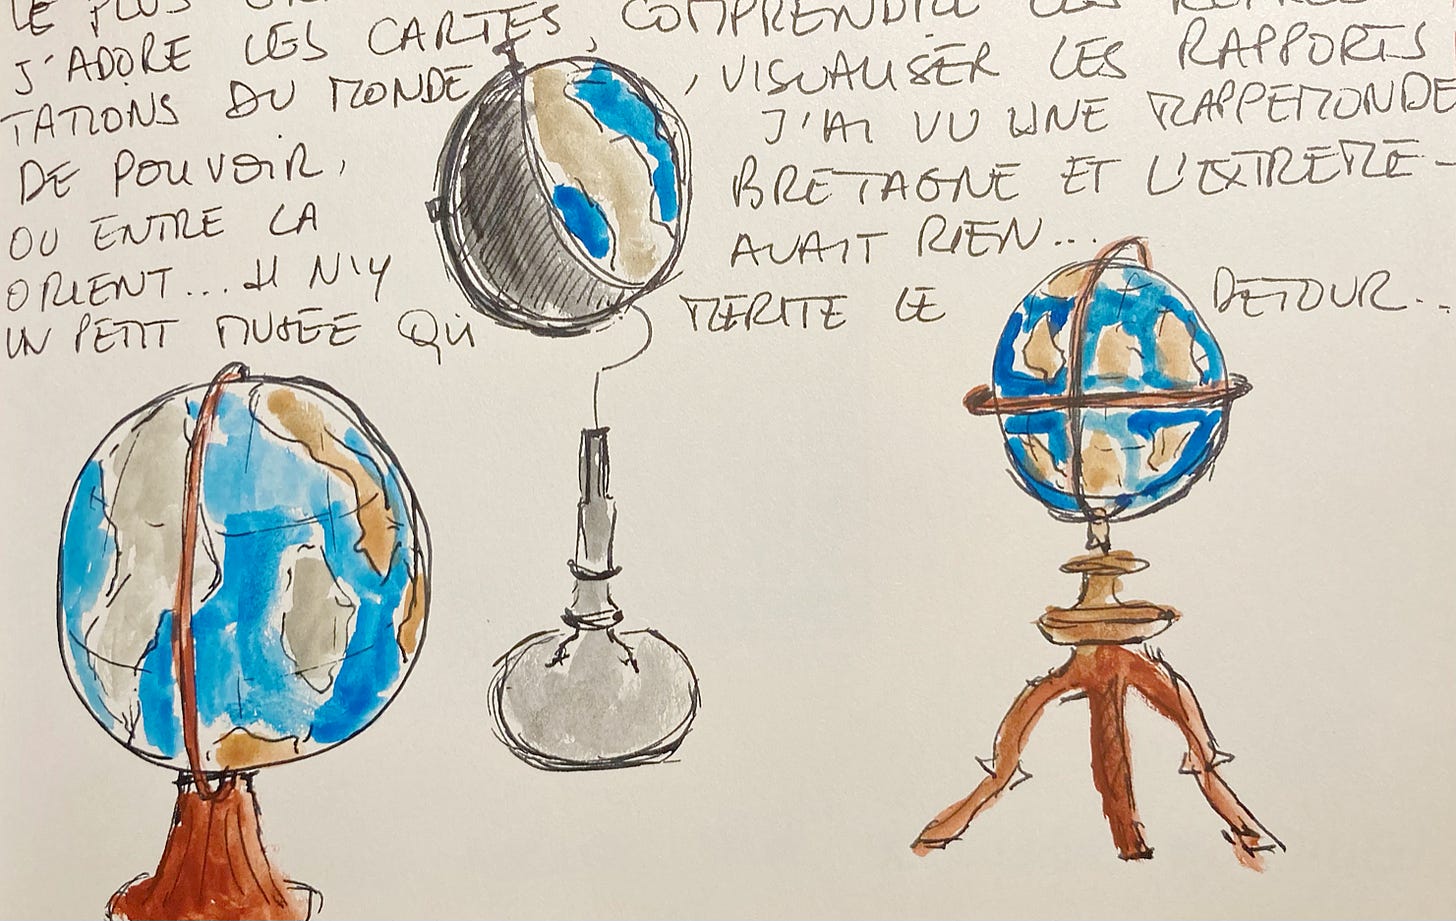 LE PLUS
J'ADORE LES CARTES, COMPRENDRE LES
TATIONS DU MONDE, VISUALISER LES RAPPORTS
DE POUVOIR, J'AI VU UNE MAPPEMONDE
OU ENTRE LA BRETAGNE ET L'EXTREME-
ORIENT... IL N'Y AVAIT RIEN...
UN PETIT MUSEE QUI MERITE LE DETOUR...